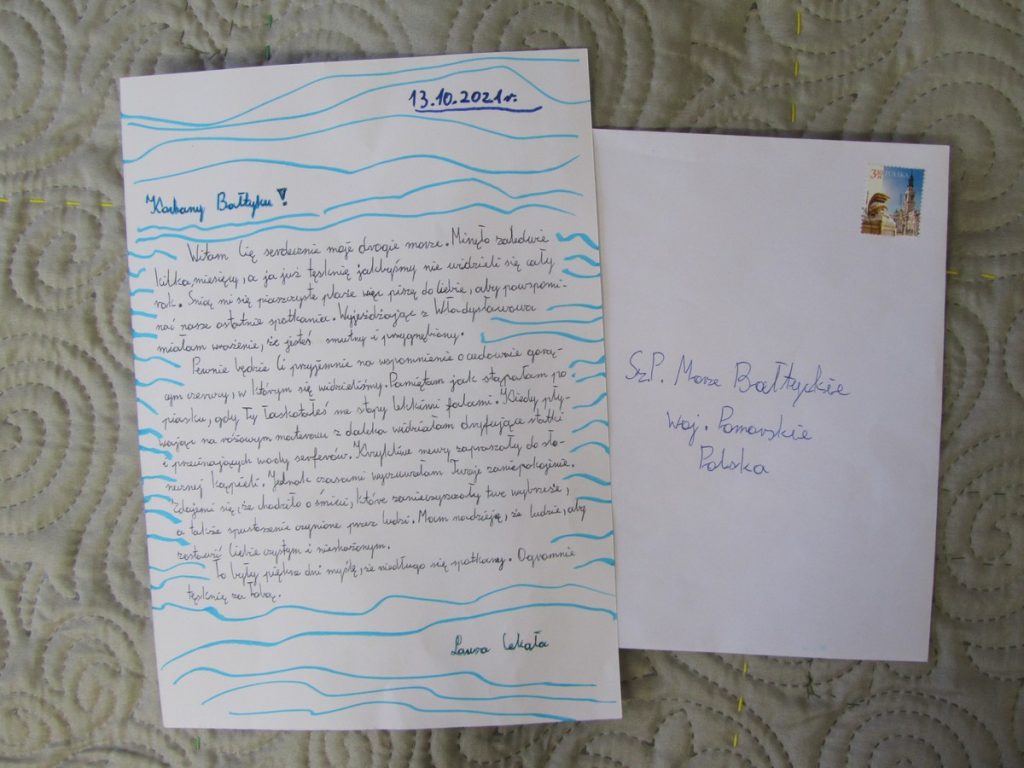 13.10.2021r.
Kochany Bałtyku!
Witam Cię serdecznie moje drogie morze. Minęło zaledwie
kilka miesięcy, a ja już tęsknię jakbyśmy nie widzieli się cały
rok. Śnią mi się piaszczyste plaże więc piszę do Ciebie, aby powspomi-
nać nasze ostatnie spotkania. Wyjeżdżając z Władysławowa
miałam wrażenie, że jesteś smutny i przygnębiony.
Pewnie będzie Ci przyjemnie na wspomnienie o cudownie gorą-
cym czerwcu, w którym się widzieliśmy. Pamiętam jak stąpałam po
piasku, gdy Ty łaskotałeś me stopy lekkimi falami. Kiedy pły-
wając na różowym materacu z daleka widziałam dryfujące statki
i przecinających wody serferów. Krzykliwe mewy zapraszały do sło-
necznej kąpieli. Jednak czasami wyczuwałam Twoje zaniepokojenie.
Zdaje mi się, że chodziło o śmieci, które zanieczyszczały twe wybrzeże,
a także spustoszenie czynione przez ludzi. Mam nadzieję, że ludzie, aby
zostawić Ciebie czystym i nieskażonym.
To były piękne dni myślę, że niedługo się spotkamy. Ogromnie
tęsknię za Tobą.
Laura Cekała
3,20 POLSKA
Sz.P. Morze Bałtyckie
Woj. Pomorskie
Polska